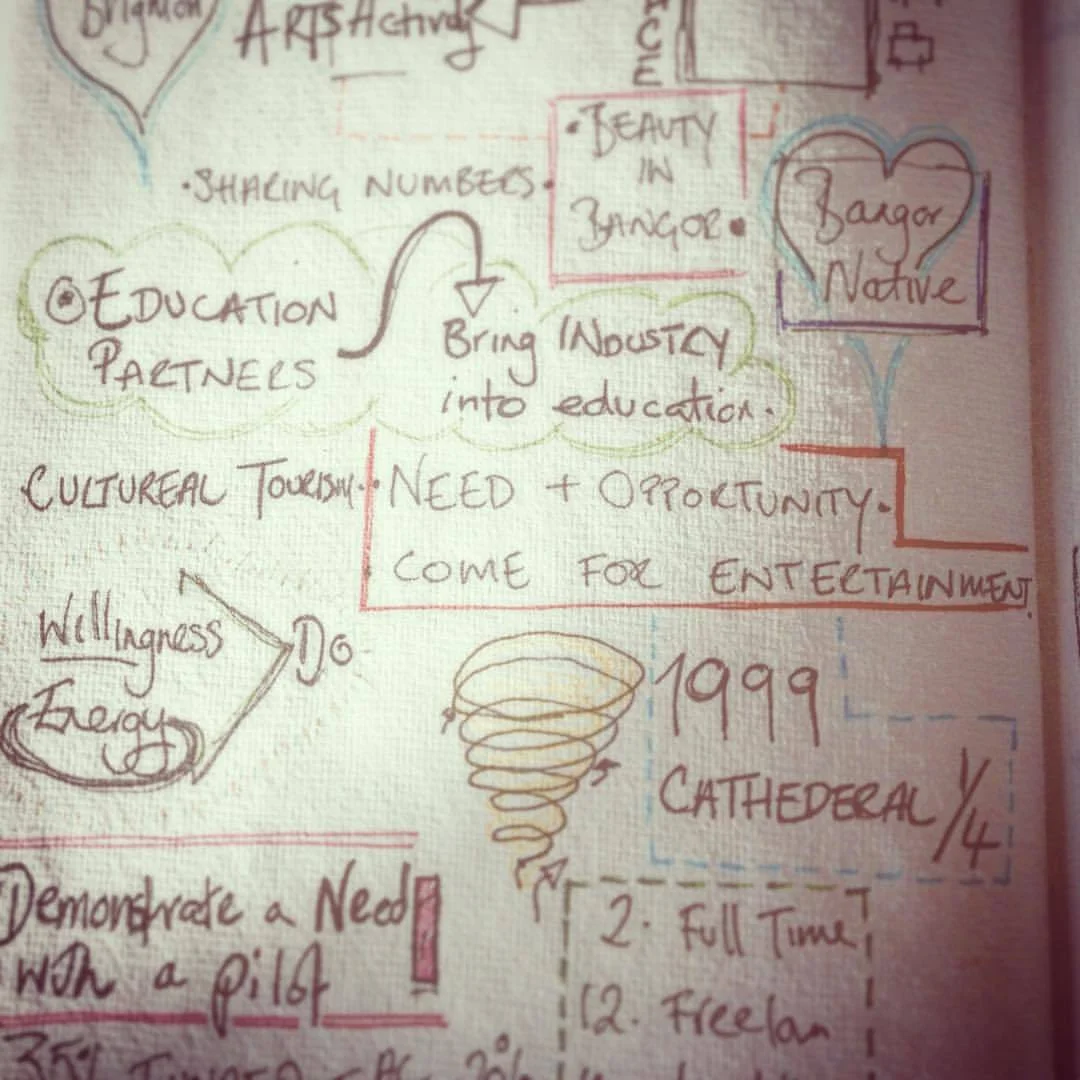 Brighton
ARTS Activity
ACE
• BEAUTY
IN
BANGOR •
• SHARING NUMBERS •
Bangor
Native
EDUCATION
PARTNERS
Bring INDUSTRY
into education.
CULTUREAL TOURISM •
• NEED + OPPORTUNITY.
COME FOR ENTERTAINMENT.
Willingness
Energy
Do
1999
CATHEDERAL 1/4
Demonstrate a Need
with a pilot
2. Full Time
12. Freelan
35%